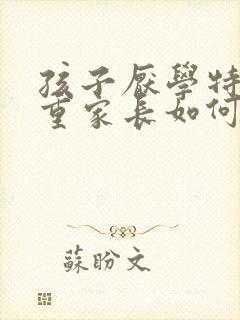 孩子厭學特
重家長如何
蘇盼文